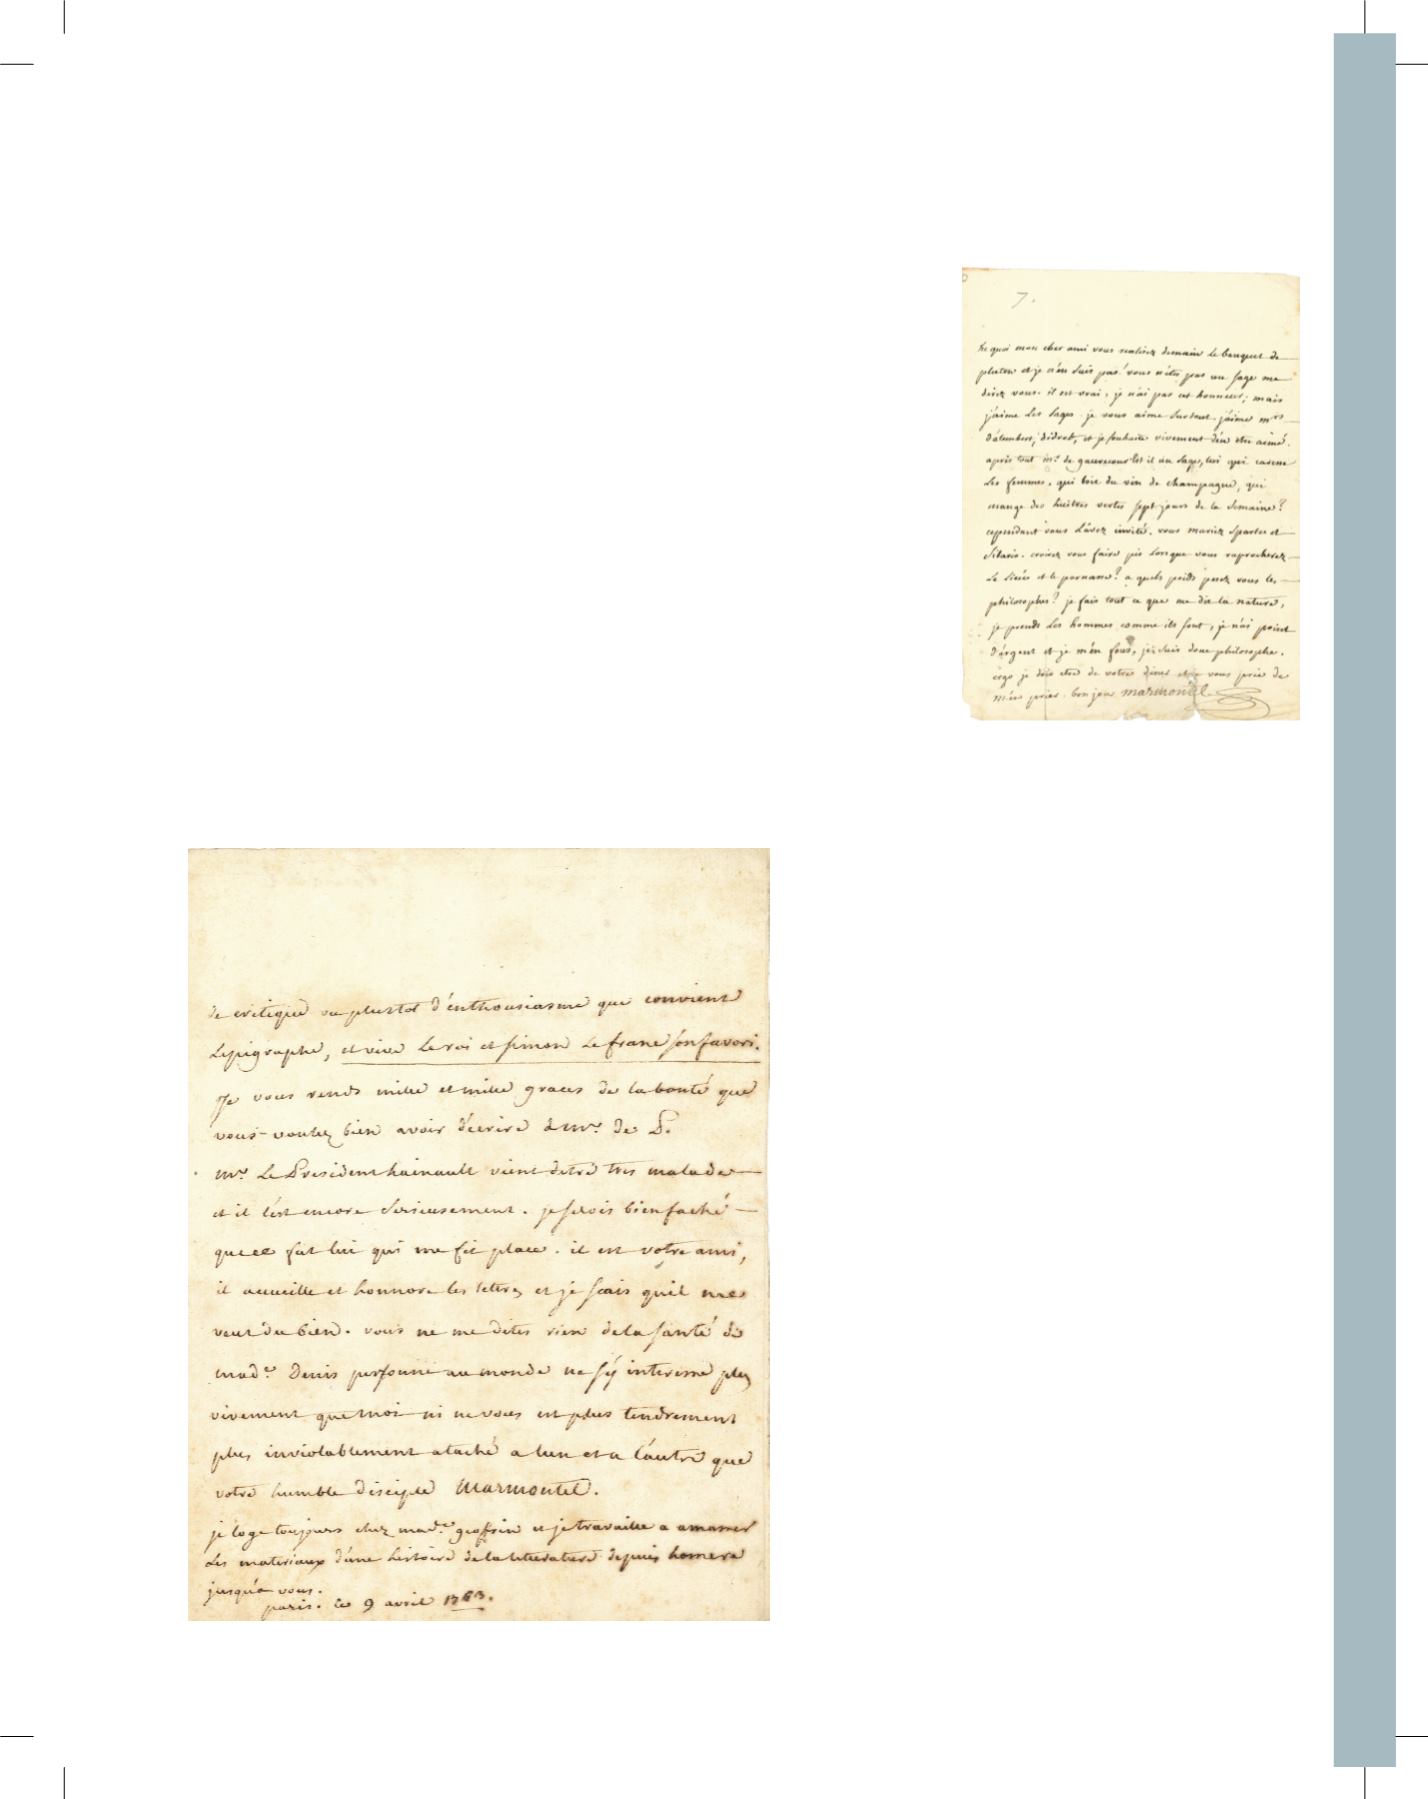 7.
he quoi mon cher ami vous realisez demain le banquet de
platon et je n'en suis pas! vous n'etes pas un sage me
direz vous. il est vrai, je n'ai pas cet honneur; mais
j'aime les sages. je vous aime surtout. j'aime mrs
d'alembert, didrot, et je souhaite vivement d'en etre aimé.
après tout mr. de gauffecourt est il un sage, lui qui caresse
les femmes, qui boit du vin de champagne, qui
mange des huitres vertes sept jours de la semaine?
cependant vous l'avez invité. vous mariez sparte et
sibaris. croiez vous faire pis lorsque vous raprocherez
le licée et le parnasse? a quels poids pesez vous les
philosophes? je fais tout ce que me dit la nature,
je prends les hommes comme ils sont, je n'ai point
d'argent et je m'en fous, je suis donc philosophe.
ergo je dois etre de votre diner et je vous prie de
m'en prier. bon jour marmontel
de critique ou plustot d'enthousiasme que convient
l'epigraphe, et vive le roi et simon le franc son favori.
Je vous rends mille et mille graces de la bonté que
vous voulez bien avoir d'ecrire a mr. de P.
mr. le President hainault vient detre tres malade
et il l'est encore serieusement. je serois bien faché
que ce fut lui qui me fit place. il est votre ami,
il accueille et honnore les lettres et je scais quil me
veut du bien. vous ne me dites rien de la santé de
made. Denis personne au monde ne s'y interesse plus
vivement que moi ni ne vous est plus tendrement
plus inviolablement ataché a l'un et a l'autre que
votre humble disciple Marmontel.
je loge toujours chez made. geoffrin et je travaille a amasser
les materiaux d'une histoire de la litterature depuis homere
jusqu'a vous.
paris. ce 9 avril 1763.